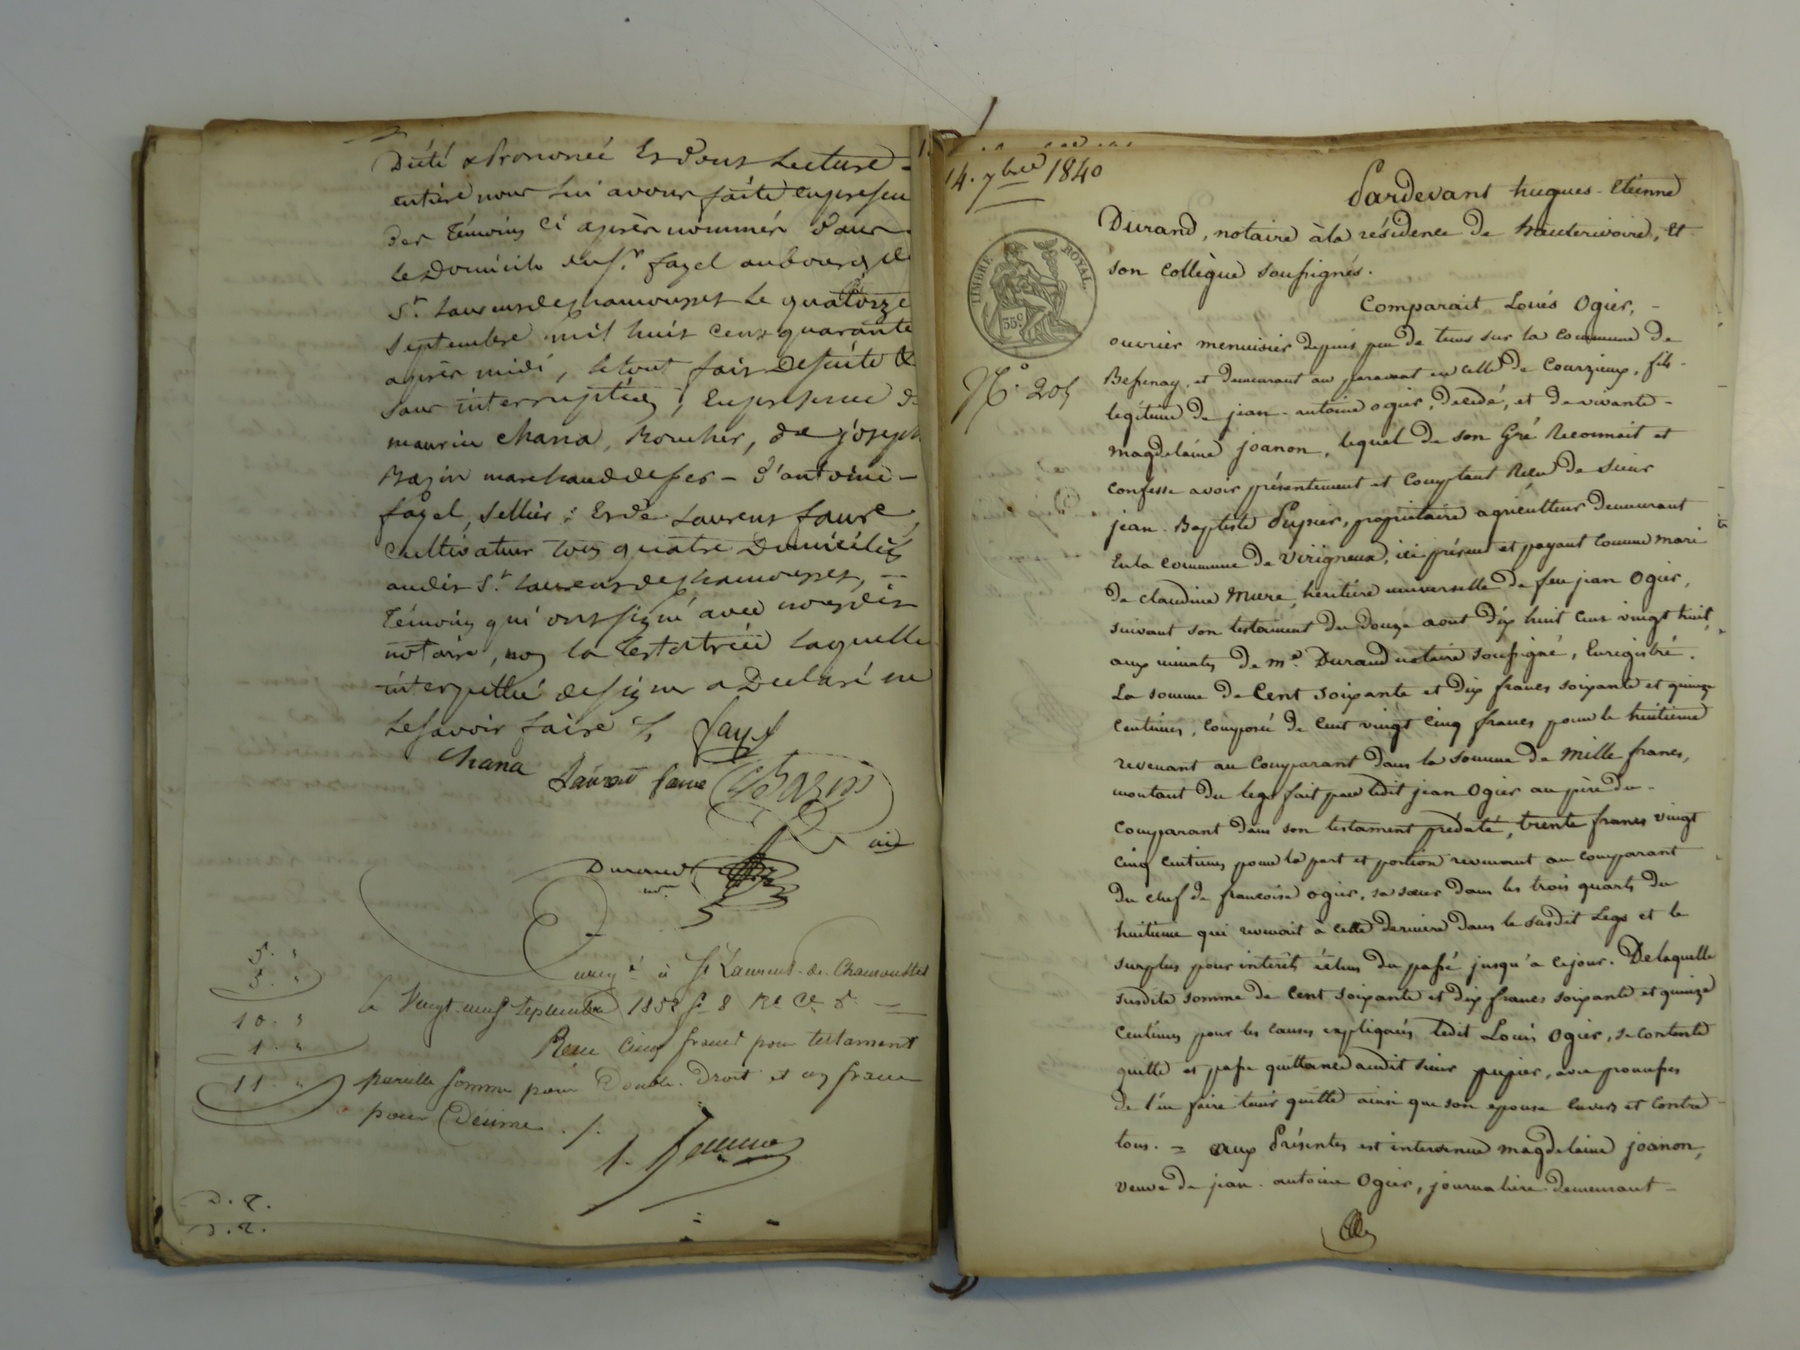 Dicté & Prononcé Et dont Lecture
entière nous lui avons faite en presen
des Témoins ci après nommés dans
le Domicile du sr. fayel au bourg de
St. Laurent de chamousset Le quatorze
Septembre mil huit cent quarante
après midi, le tout fait de suite &
sans interruption, En presence de
maurice chana, Boucher, de joseph
Bazin marchand de fer - d'antoine -
fayel, sellier ; Et de Laurent faure,
cultivateur tous quatre Domiciliés
audit St. Laurent de chamousset, =
Témoins qui ont signé avec nous dit
notaire, non la Testatrice laquelle
interpellée de signer a Declaré ne
le savoir faire /.
fayel
Chana Laurent faure Bazin
Durand
nre
5. "
5. "
10. "
1. "
11. "
Enreg é à St Laurent-de-Chamousset
le Vingt-neuf Septembre 185 fo 8 Ro Ce 5
Reçu Cinq francs pour testament
pareille somme pour Double-Droit et un franc
pour Décime ./.
D. 2.
D. 2.
14. 7bre 1840
TIMBRE ROYAL
35c
No. 205
Pardevant hugues-Etienne
Durand, notaire à la résidence de hauterivoire, Et
son collègue soussignés.
Comparait Louis Ogier, -
ouvrier menuisier depuis peu de tems sur la commune de
Bessenay, et demeurant au paravant en celle de Courzieux, fils -
légitime de jean-antoine ogier, décédé, et de vivante -
magdelaine joanon, lequel de son Gré Reconnait et
confesse avoir présentement et Comptant Reçu de sieur
jean-Baptiste Pupier, propriétaire agriculteur demeurant
En la commune de Virigneux, ici présent et payant comme mari
de claudine Mure, héritière universelle de feu jean Ogier,
suivant son testament du douze aout dix huit cent vingt huit,
aux minutes de me. Durand notaire soussigné, Enregistré.
La somme de Cent soixante et dix francs soixante et quinze
centimes, composée de cent vingt cinq francs pour le huitième
revenant au Comparant dans la somme de Mille francs,
montant du legs fait par ledit jean Ogier au père du -
Comparant dans son testament prédaté, trente francs vingt
cinq centimes pour la part et portion revenant au comparant
du chef de francoise ogier, sa sœur dans les trois quarts du
huitième qui revenait à cette dernière dans le susdit Legs et le
surplus pour intérêts échus du passé jusqu'à ce jour. De laquelle
susdite somme de Cent soixante et dix francs soixante et quinze
Centimes pour les causes expliquées ledit Louis Ogier, se contente
quitte et passe quittance audit sieur pupier, avec promesses
de l'en faire tenir quitte ainsi que son epouse Envers et Contre
tous. = aux Présentes est intervenue magdelaine joanon,
veuve de jean-antoine Ogier, journalière demeurant -